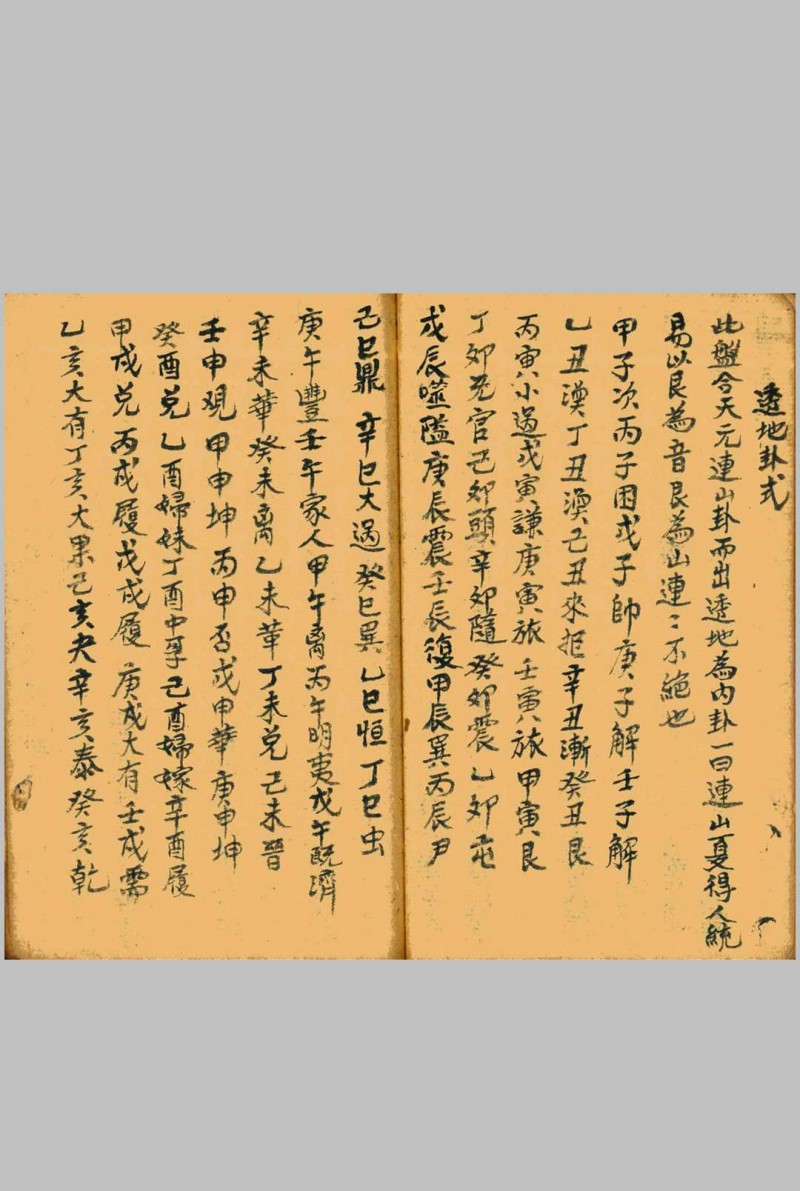 透地卦式
此盤合天元連山卦而出透地為內卦一曰連山夏得人統
易以艮為音艮為山連〻不絕也
甲子次丙子困戊子帥庚子解壬子解
乙丑渙丁丑渙己丑來拒辛丑漸癸丑艮
丙寅小過戊寅謙庚寅旅壬寅旅甲寅艮
丁卯无官己卯頭辛卯隨癸卯震乙卯屯
戊辰噬隘庚辰震壬辰復甲辰巽丙辰尹
己巳鼎 辛巳大過癸巳巽乙巳恒丁巳虫
庚午豐壬午家人甲午离丙午明夷戊午既濟
辛未華癸未离乙未革丁未兑己未晉
壬申观甲申坤丙申否戊申華庚申坤
癸酉兑乙酉婦妹丁酉中孚己酉婦嫁辛酉履
甲戍兑丙戍履戊戍履庚戍大有壬戍需
乙亥大有丁亥大果己亥夬辛亥泰癸亥乾